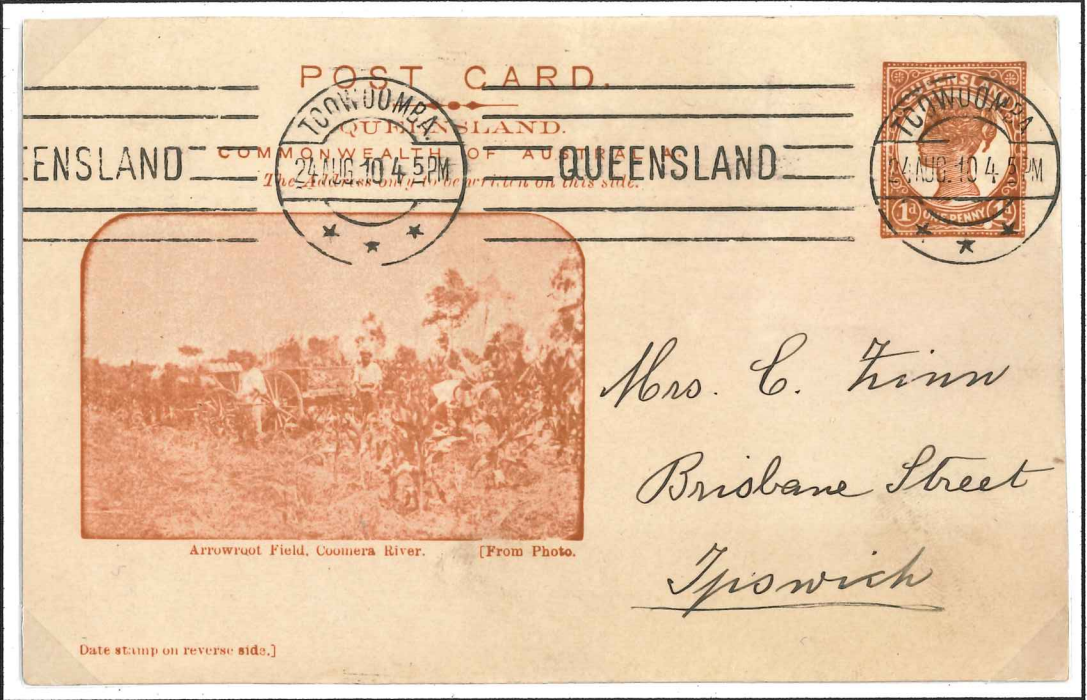 POST CARD.
QUEENSLAND.
COMMONWEALTH OF AUSTRALIA
The Address only to be written on this side.
TOOWOOMBA.
24 AUG.10 4 5PM
ENSLAND
QUEENSLAND
TOOWOOMBA.
24 AUG.10 4 5PM
QUEENSLAND
1d ONE PENNY 1d
Arrowroot Field, Coomera River. [From Photo.
Mrs. C. Zinn
Brisbane Street
Ipswich
Date stamp on reverse side.]